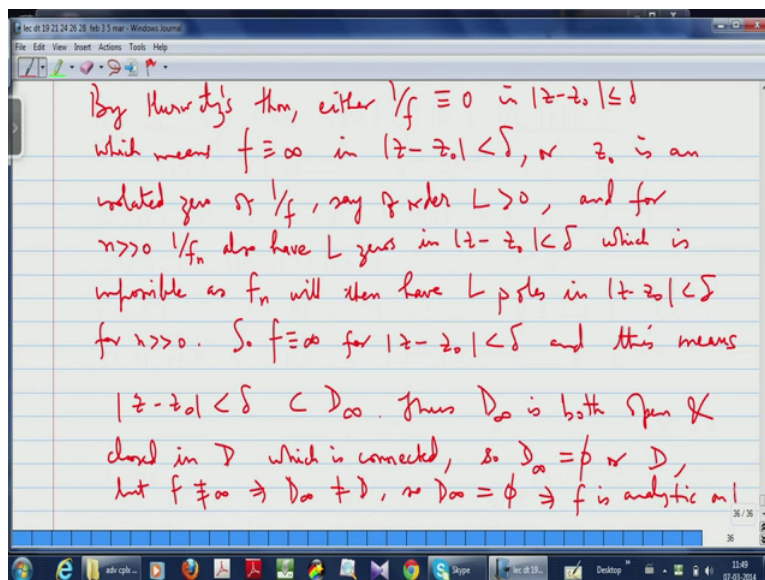 lec dt 19 21 24 26 28 feb 3 5 mar - Windows Journal
File Edit View Insert Actions Tools Help
By Hurwitz's thm, either 1/f ≡ 0 in |z-z₀| ≤ δ
which means f ≡ ∞ in |z-z₀| < δ, or z₀ is an
isolated zero of 1/f, say of order L > 0, and for
n>>0 1/fₙ also have L zeros in |z-z₀| < δ which is
impossible as fₙ will then have L poles in |z-z₀| < δ
for n>>0. So f ≡ ∞ for |z-z₀| < δ and this means
|z-z₀| < δ ⊂ D∞. Thus D∞ is both open &
closed in D which is connected, so D∞ = φ or D,
but f ≢ ∞ ⇒ D∞ ≠ D, so D∞ = φ ⇒ f is analytic on
36 / 36
36
adv cplx...
Skype
lec dt 19...
Desktop
11:49
07-03-2014